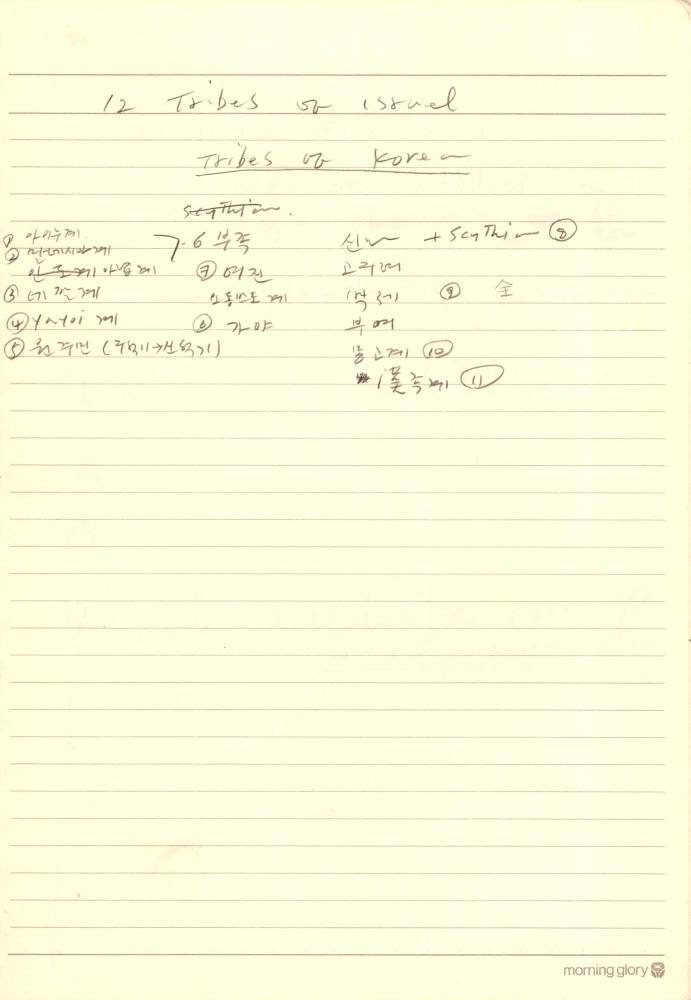 12 Tribes of israel
Tribes of Korea
scythian.
① 아이누계
② 만네시아계
7. 6 부족
신라 + Scythian ⑧
인도계 아남계
⑦ 여진
고구려
③ 네
계
계
백제 ⑨ 全
④ Yayoi 계
⑥ 가야
부여
⑤ 원주민 (구
→
기)
몽고계 ⑩
漢족계 ⑪
morning glory